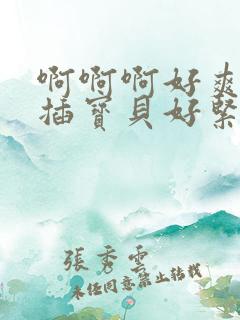 啊啊啊好爽
插寶貝好緊
張秀雲
未经同意禁止转载